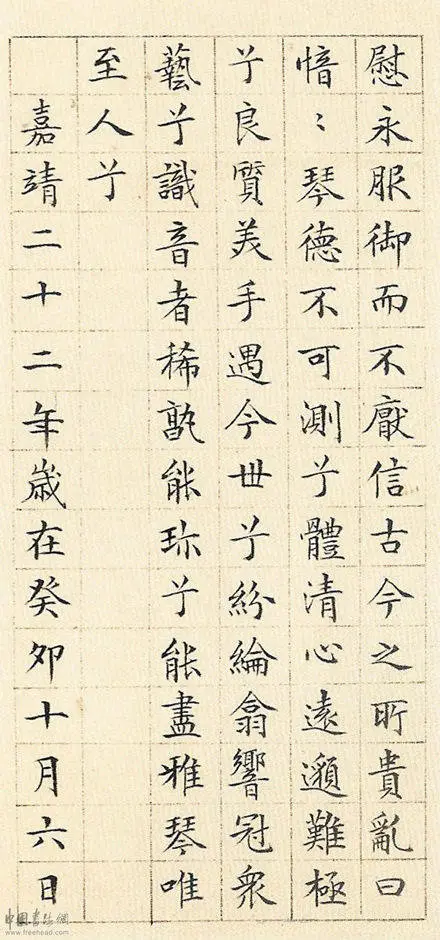 慰永服御而不厭信古今之所貴亂曰
愔〻琴德不可測兮體清心遠邈難極
兮良質美手遇今世兮紛綸翕響冠衆
藝兮識音者稀孰能珎兮能盡雅琴唯
至人兮
嘉靖二十二年歲在癸卯十月六日
中國書法網
www.freehead.com